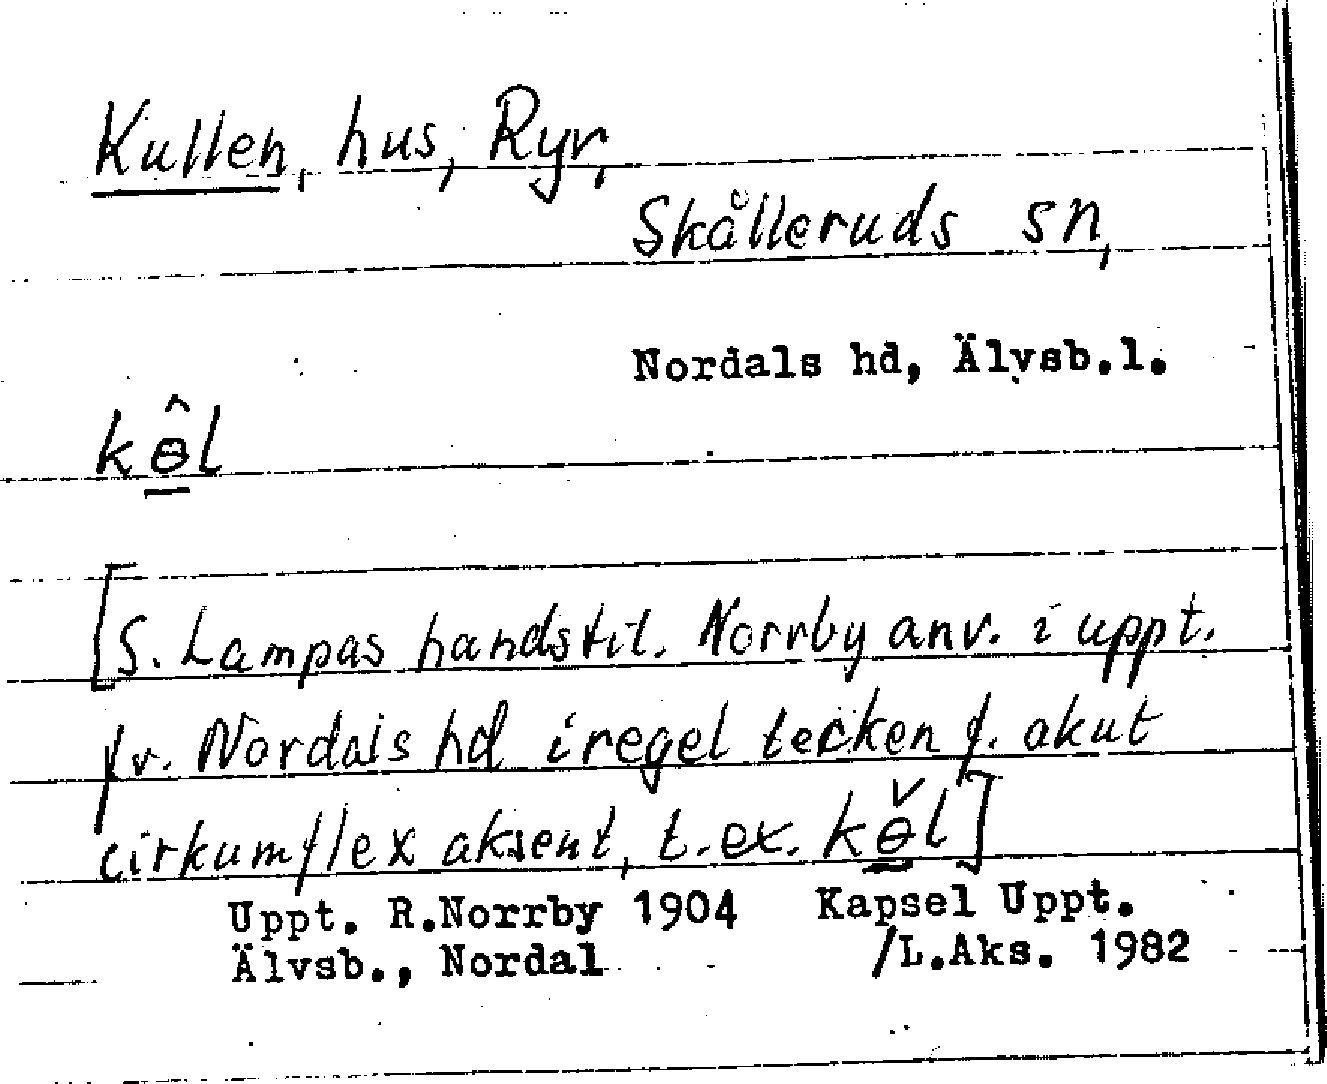 Kullen, hus, Ryr,
Skålleruds sn,
Nordals hd, Älvsb.l.
kɵ̲̂l
[S. Lampas handstil. Norrby anv. i uppt.
fr. Nordals hd i regel tecken f. akut
cirkumflex aksent, t.ex. kɵ̲̌l]
Uppt. R.Norrby 1904 Kapsel Uppt.
Älvsb., Nordal /L.Aks. 1982